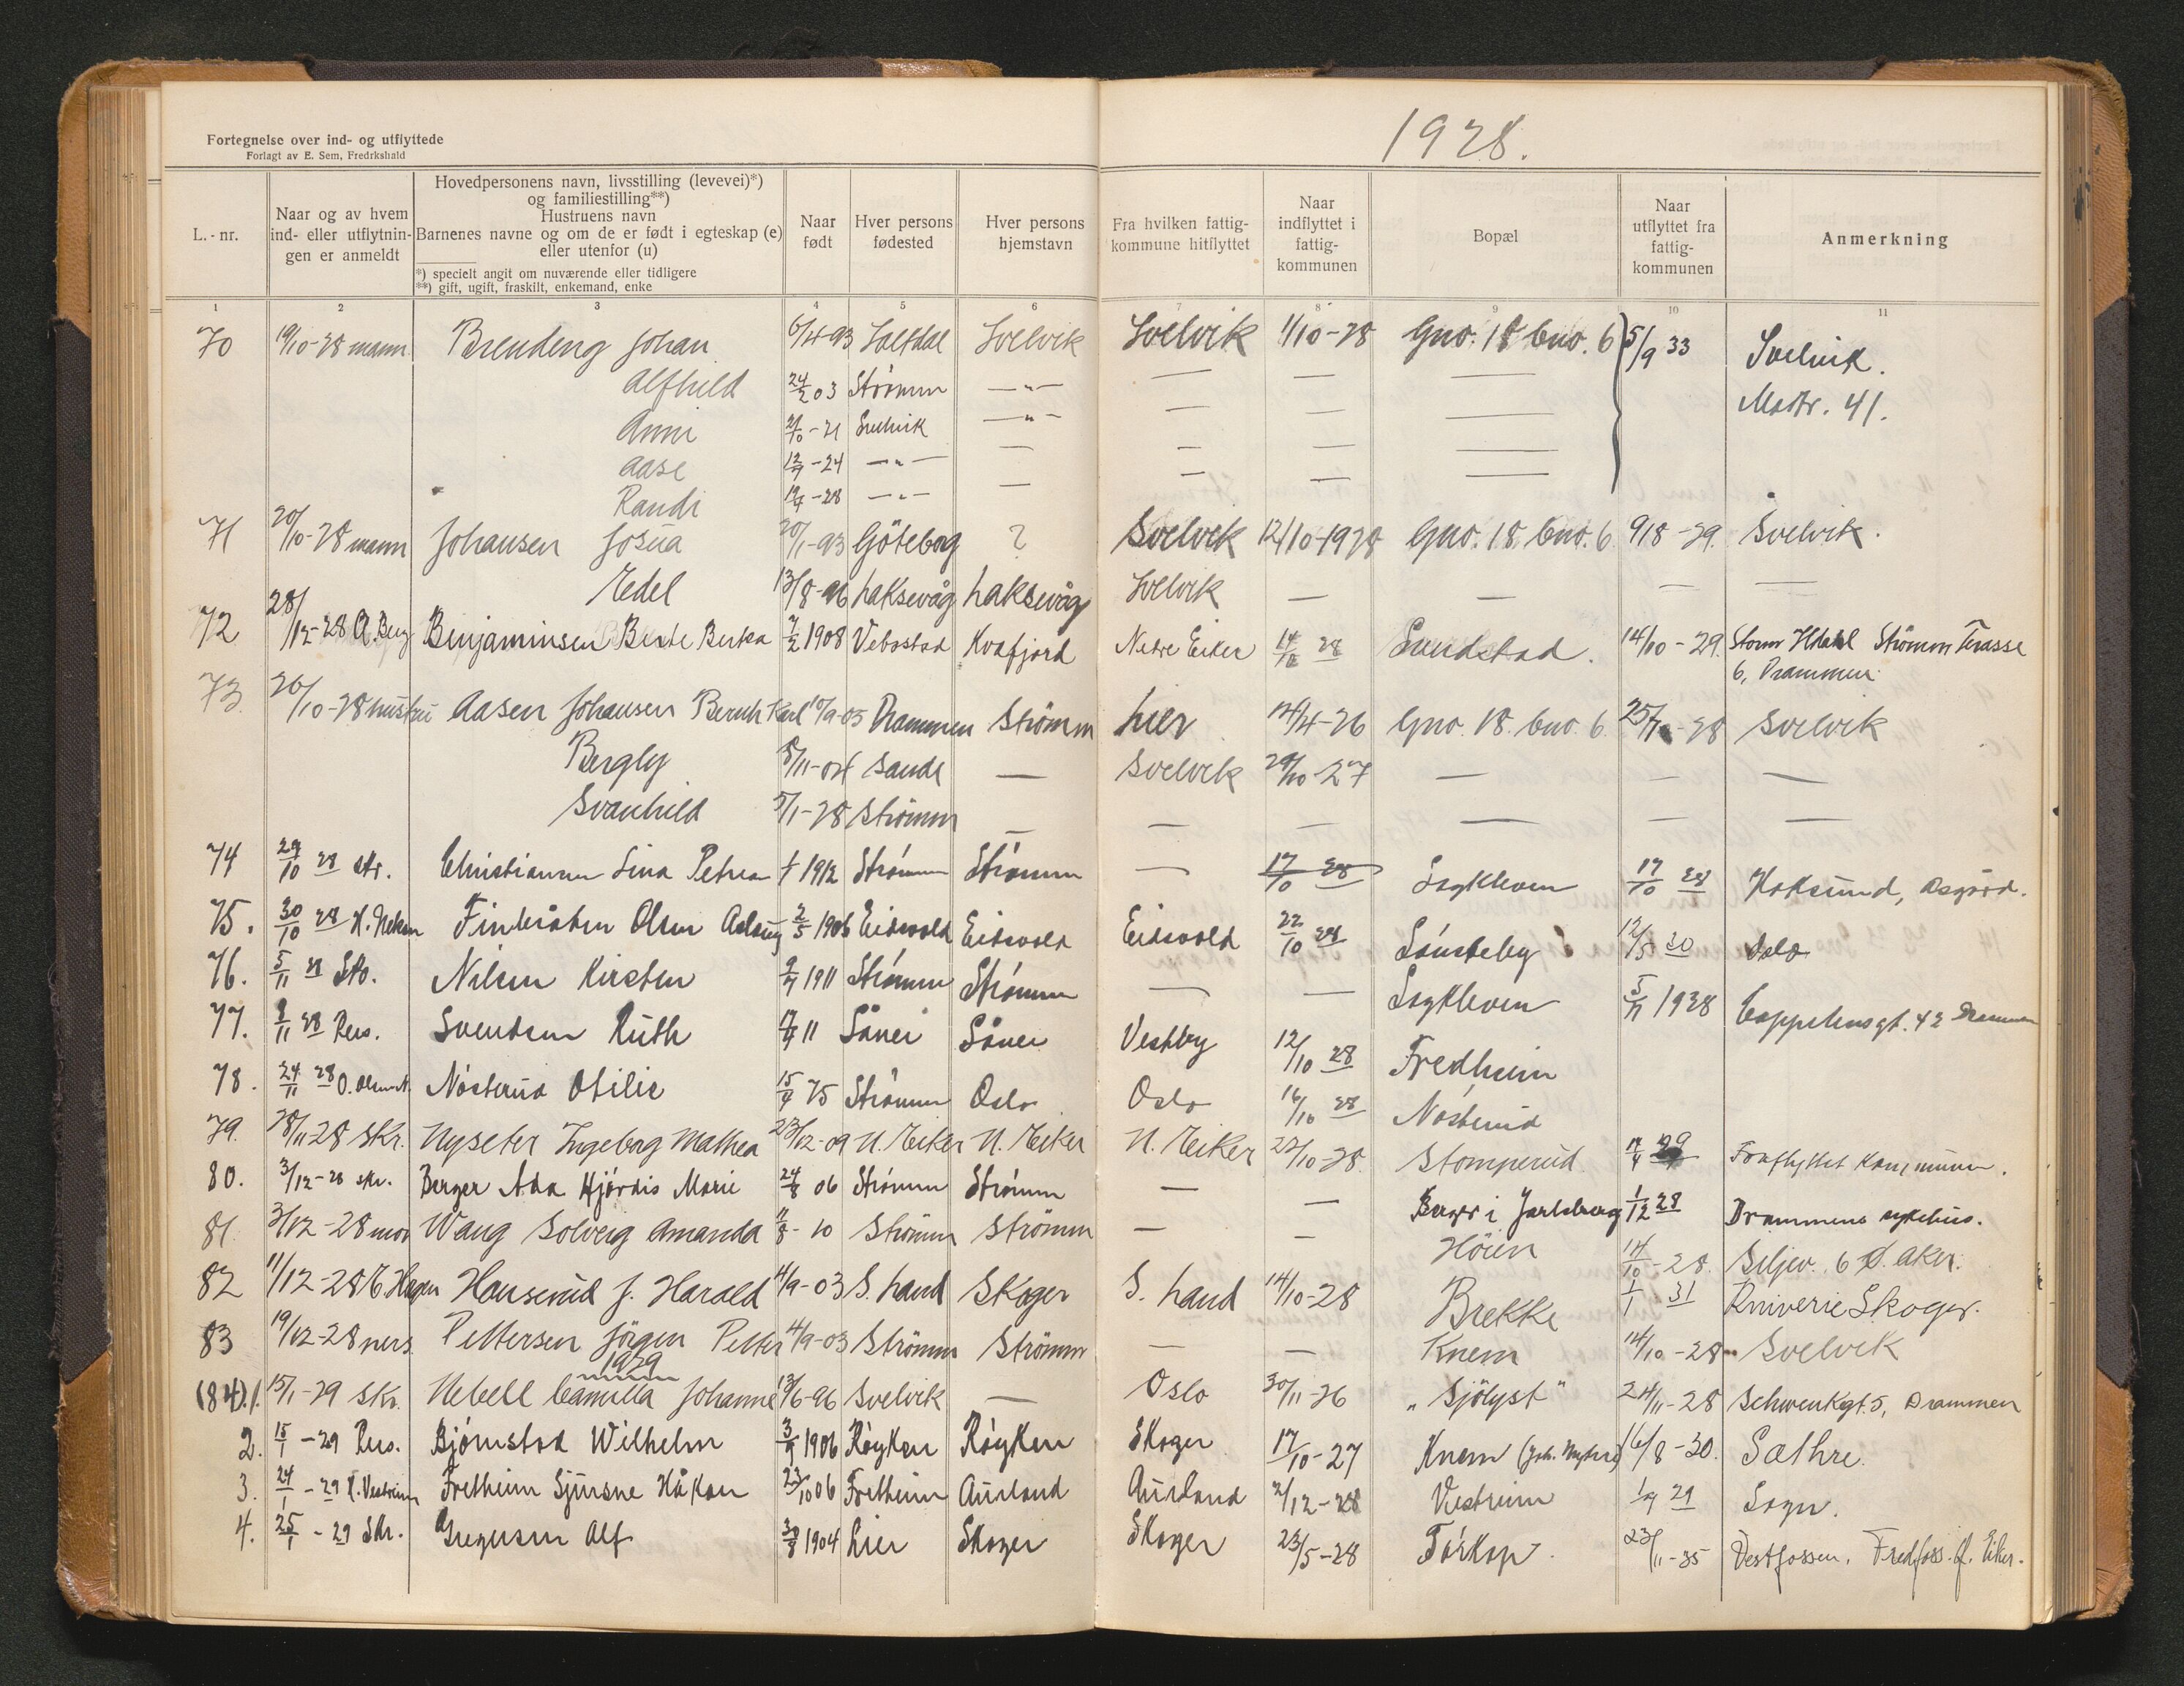 Fortegnelse over ind- og utflyttede
Forlagt av E. Sem, Fredrkshald
1928.
L.-nr.
Naar og av hvem ind- eller utflytningen er anmeldt
Hovedpersonens navn, livsstilling (levevei)*)
og familiestilling**)
Hustruens navn
Barnenes navne og om de er født i egteskap (e)
eller utenfor (u)
*) specielt angit om nuværende eller tidligere
**) gift, ugift, fraskilt, enkemand, enke
Naar født
Hver persons fødested
Hver persons hjemstavn
Fra hvilken fattigkommune hitflyttet
Naar indflyttet i fattigkommunen
Bopæl
Naar utflyttet fra fattigkommunen
Anmerkning
1 2 3 4 5 6 7 8 9 10 11
70 19/10-28 mann Brendeng Johan 6/4-93 Saltdal Svelvik Svelvik 1/10-28 Gno. 18 bno. 6 5/9 33 Svelvik.
Alfhild 24/2 03 Strömm —"— — — — Mastr. 41.
Anni 21/10-21 Svelvik —"— — — —
Aase 12/9-24 —"— — — — —
Randi 19/7-28 —"— — — — —
71 20/10-28 mann Johansen Josua 20/1-93 Göteborg ? Svelvik 12/10-1928 Gno. 18. bno. 6 9/8-29. Svelvik.
Edel 13/8-96 Laksevåg Laksevåg Svelvik — — — —
72 28/12-28 A. Berg Benjaminsen Berte Berka 7/2 1908 Vebostad Kvafjord Nedre Eiker 14/12 28 Sundstad. 14/10-29. Strömm Terasse
6, Drammen
73 26/10-28 hustru Aasen Johansen Bernh Karl 10/9-05 Drammen Strömm Lier 14/4-26 Gno. 18. bno. 6 25/10-28 Svelvik
Bergly 8/11-04 Sande — Svelvik 29/10-27 — — —
Svanhild 5/1-28 Strömm — — — — — —
74 29/10 28 str. Christiansen Lina Petrea 1912 Strömm Strömm — 17/10 28 Sagkleven 17/10 28 Hoksund, Asgård.
75. 30/10 28 Finbråten Olsen Aslaug 2/5 1906 Eidsvold Eidsvold Eidsvold 22/10 28 Sönsteby 12/5 30 Oslo
76. 5/11 28 Sko. Nilsen Kirsten 9/7 1911 Strömm Strömm — — Sagkleven 5/11 1928 Cappelensgt. 42 Drammen
77. 8/11 28 Pers. Svendsen Ruth 11 Såner Såner Vestby 12/10 28 Fredheim
78. 24/11 28 O. Nösterud Otilie 15/9 75 Strömm Oslo Oslo 16/10 28 Nösterud
79. 28/11-28 skr. Nyseter Ingeborg Mathea 23/12-09 N. Eiker N. Eiker N. Eiker 22/10-28. Stomperud 29 Fraflyttet kommunen.
80. 3/12-28 skr. Berger Ada Hjördis Marie 24/8 06 Strömm Strömm — — Berger i Jarlsberg 1/12 28 Drammens sykehus.
81. 3/12-28 mor Wang Solveig Amanda 11/8-10 Strömm Strömm — — Höien 14/10-28. Seljev. 6 Ø. Aker.
82 11/12-28 E. Hagen Hanserud J. Harald 4/9-03 S. Land Skoger S. Land 14/10-28 Brekke 1/1 31 Kniverie Skoger.
83 19/12-28 pers. Pettersen Jörgen Petter 4/9-03 Strömm Strömm — — Knem 14/10-28 Svelvik
1929
(84)1. 15/1-29 skr. Nebell Camilla Johanne 13/6-96 Svelvik — Oslo 30/11-26 "Sjölyst" 24/11-28 Schwenkgt. 5, Drammen
2. 15/1-29 Pers. Bjørnstad Wilhelm 3/9 1906 Röyken Röyken Skoger 17/10-27 Knem 16/8-30. Sæthre.
3. 24/1-29 K. Vestrum Fretheim Sjursne Håkon 23/10 06 Fretheim Aurland Aurland 2/12-28 Vestrum 1/9 29 Sogn.
4. 25/1-29 Skr. Gregersen Alf 30/8 1904 Lier Skoger Skoger 23/5-28 Tørkop. 23/11-35 Vestfossen. Fredfoss. Ø. Eiker.